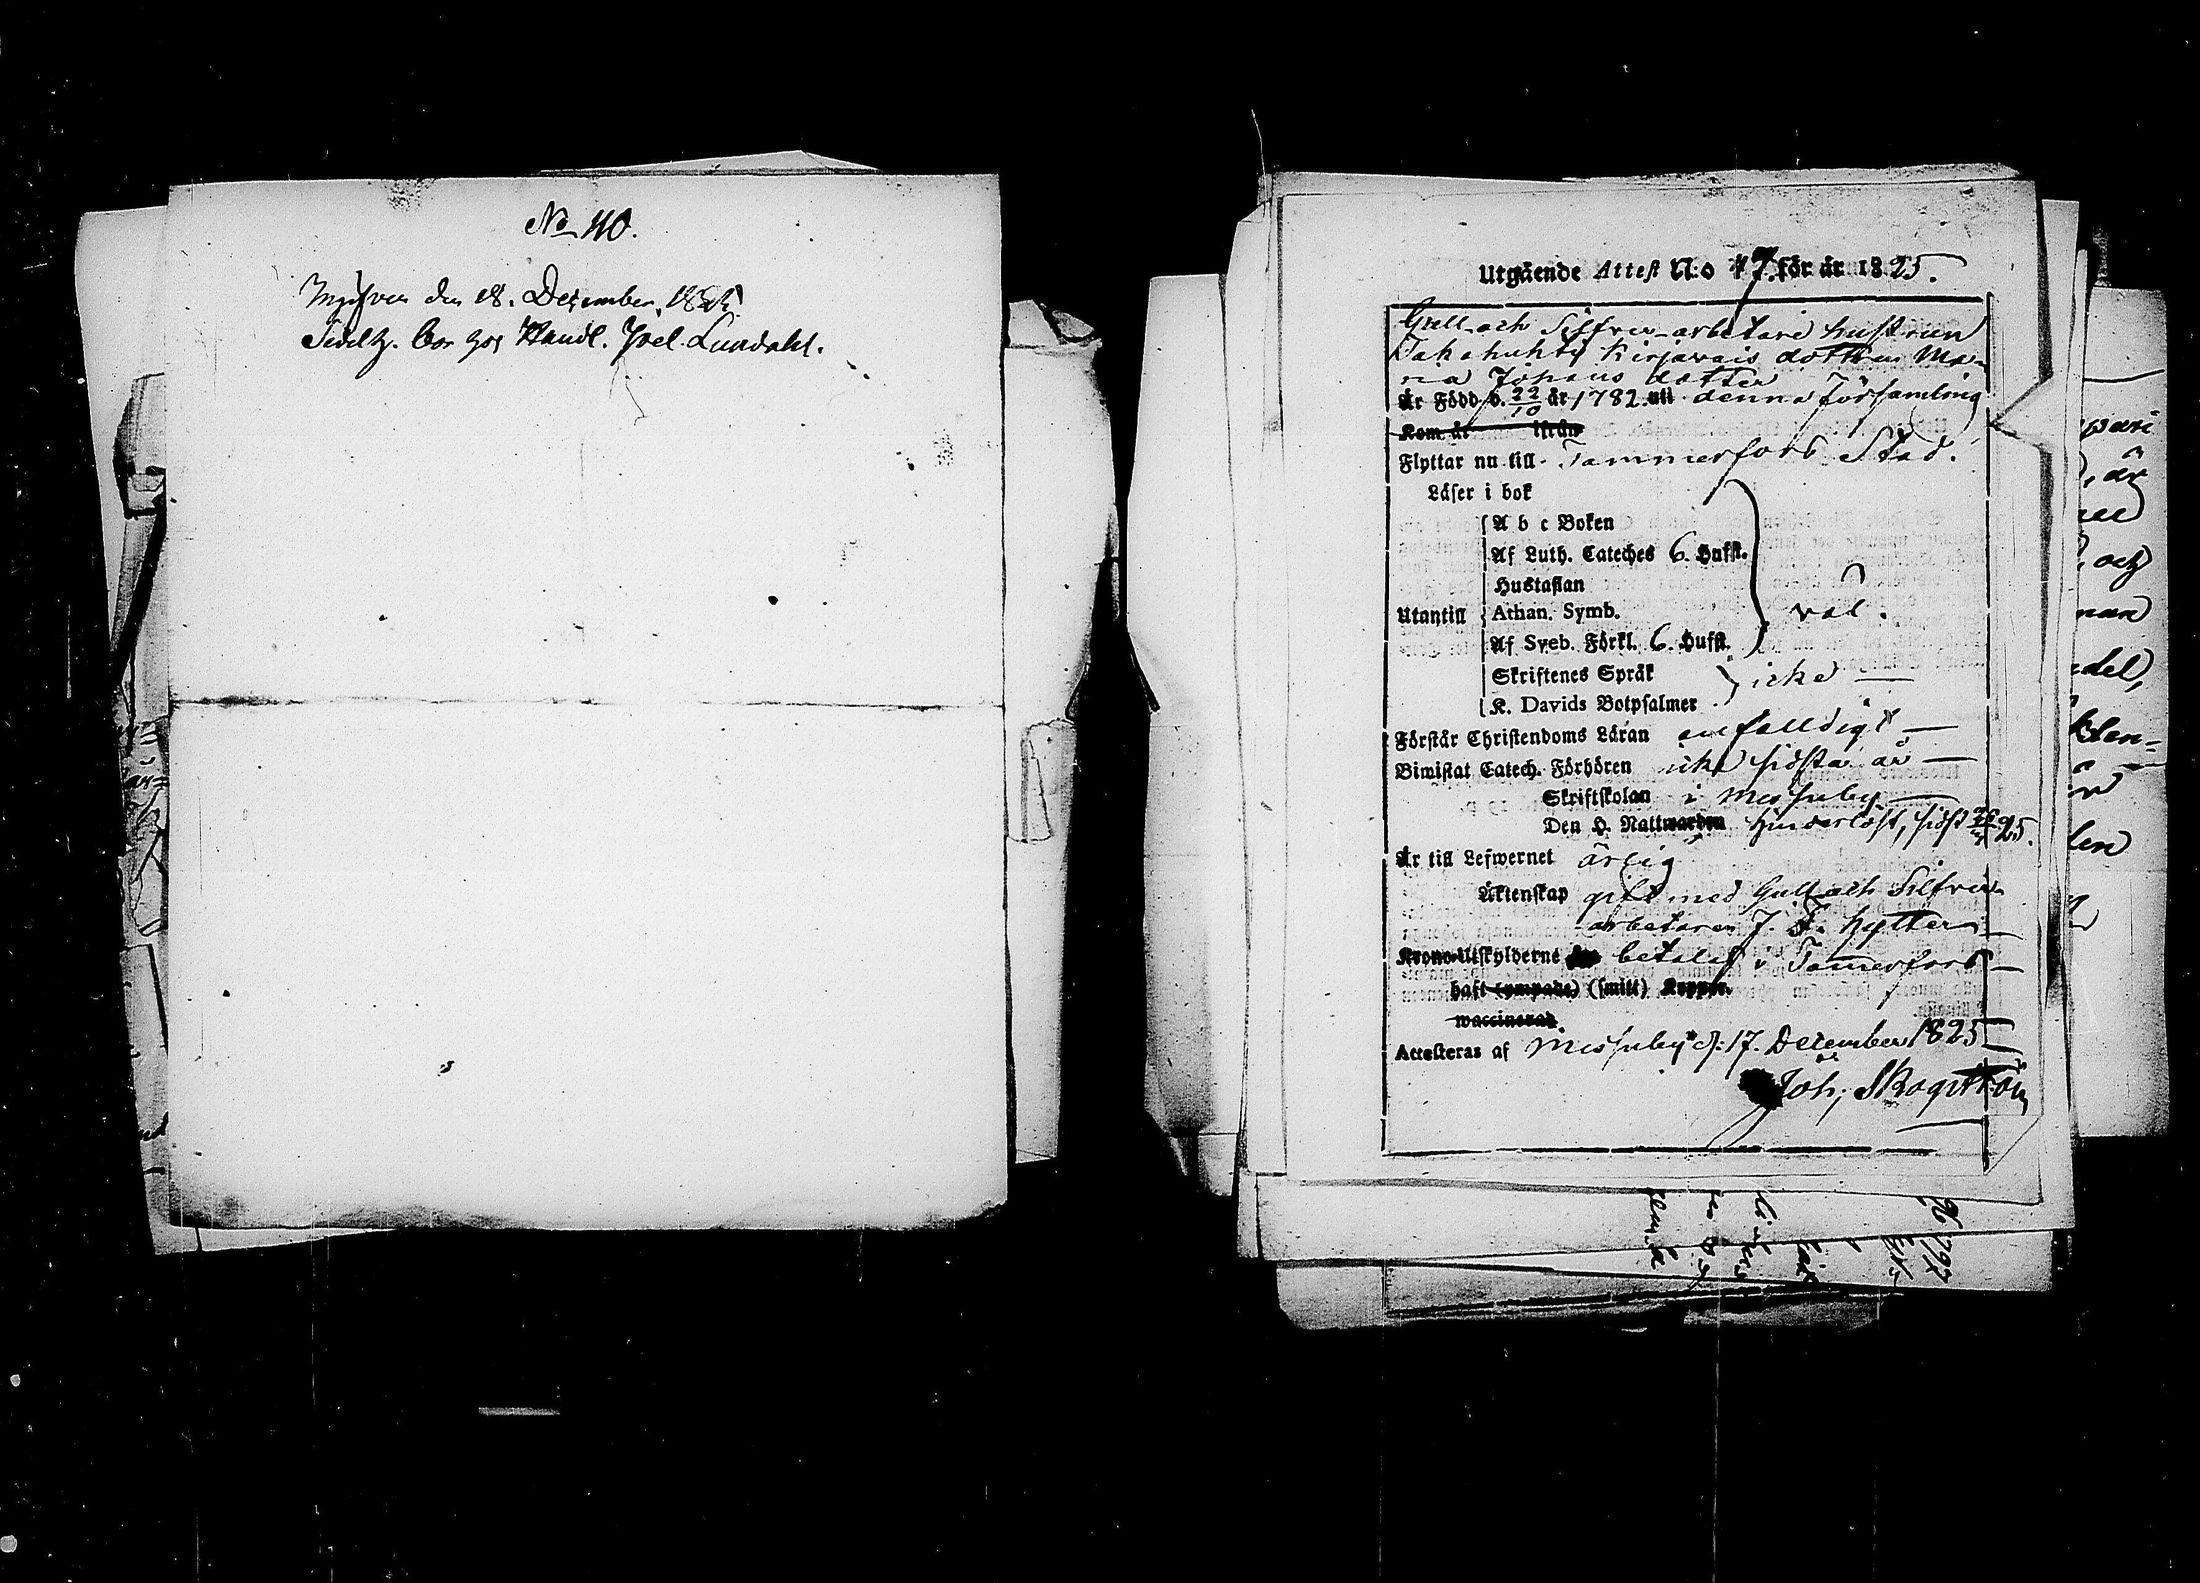 No 40.
Ingifven den 18. December, 1825
Bor hos Handl. Joel Lundahl.
Utgående Attest N:o 47. för år 1825.
Gull och Silfver-arbetare hustrun
Takahuhty Kirjavais dottren Ma-
ria Johans dotter
Är Född d. 22/10 år 1782. uti denna Församling
Kom år ifrån
Flyttar nu till Tammerfors Stad.
Läser i bok
A b c Boken
Af Luth. Cateches 6. Hufst.
Hustaflan
Utantill Athan. Symb. väl.
Af Sveb. Förkl. 6. Hufst.
Skriftenes Språk icke
K. Davids Botpsalmer
Förstår Christendoms Läran enfalldigt
Biwistat Catech. Förhören icke sidsta år
Skriftskolan i Messuby
Den H. Nattwarden hinderlöst, sidst 25.
Är till Lefwernet ärlig
Äktenskap gift med Gull och Silfver-
arbetaren J. F. Hytter
Krono-Utskylderne betalas i Tammerfors
haft (ympade) (smitt) Koppor.
waccinerad.
Attesteras af Messuby d. 17. December 1825
Joh. Skogström